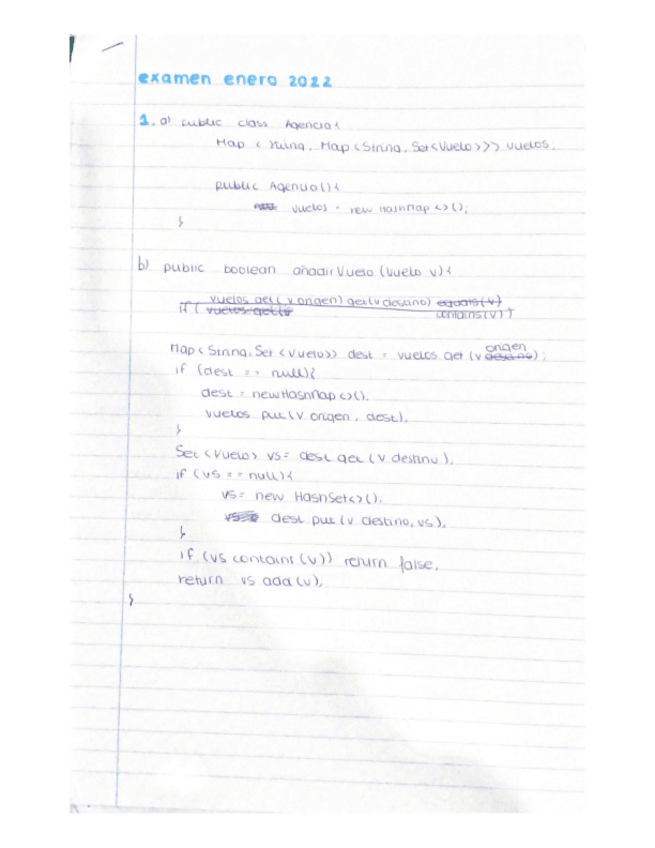 examen enero 2022
1. a) public class Agencia {
Map < String, Map <String, Set<Vuelo>>> vuelos;
public Agencia() {
vuelos = new HashMap <>();
}
b) public boolean añadirVuelo (Vuelo v) {
vuelos get( v origen) get(v destino) equals(v)
if ( vuelos.get(v contains(v) )
origen
Map < String, Set <Vuelo>> dest = vuelos get (v destino);
if (dest == null) {
dest = new HashMap <>();
vuelos put (v origen, dest);
}
Set <Vuelo> vs = dest get (v destino);
if (vs == null) {
vs = new HashSet<>();
dest put (v destino, vs);
}
if (vs contains (v)) return false;
return vs add (v);
}